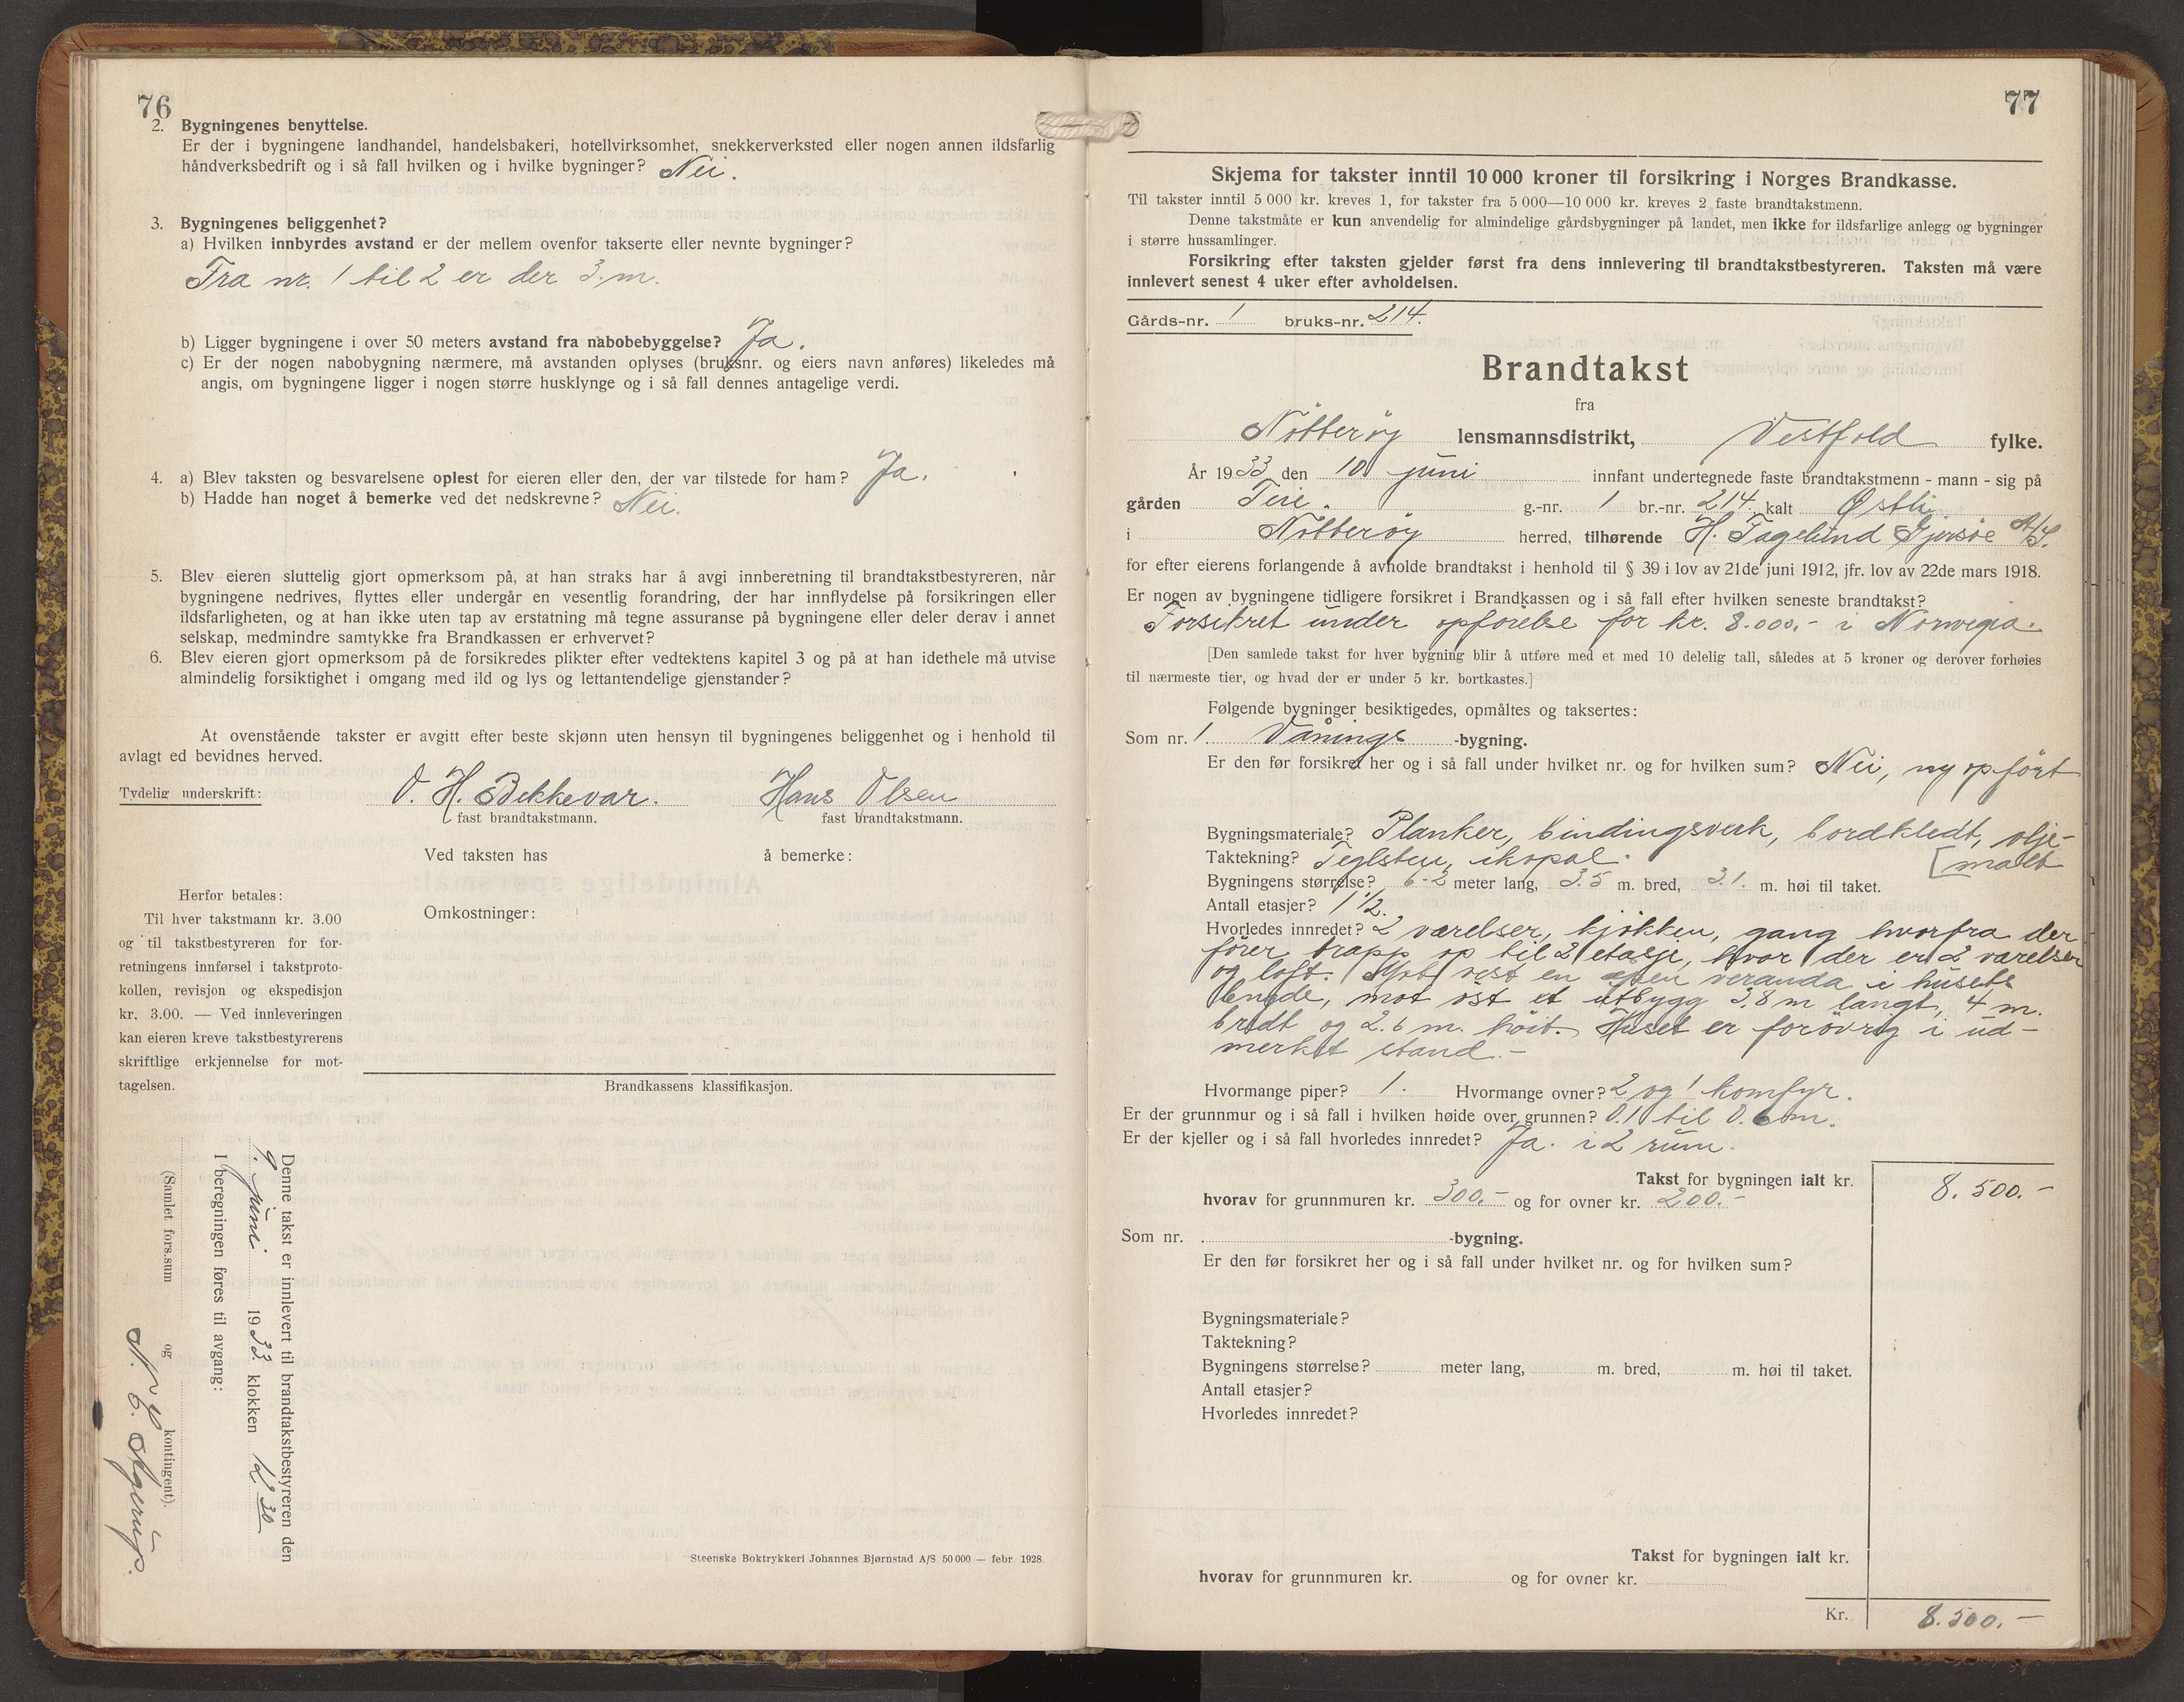 76
2. Bygningenes benyttelse.
Er der i bygningene landhandel, handelsbakeri, hotellvirksomhet, snekkerverksted eller nogen annen ildsfarlig
håndverksbedrift og i så fall hvilken og i hvilke bygninger? Nei.
3. Bygningenes beliggenhet?
a) Hvilken innbyrdes avstand er der mellem ovenfor takserte eller nevnte bygninger?
Fra nr. 1 til 2 er der 3. m.
b) Ligger bygningene i over 50 meters avstand fra nabobebyggelse? Ja.
c) Er der nogen nabobygning nærmere, må avstanden oplyses (bruksnr. og eiers navn anføres) likeledes må
angis, om bygningene ligger i nogen større husklynge og i så fall dennes antagelige verdi.
4. a) Blev taksten og besvarelsene oplest for eieren eller den, der var tilstede for ham? Ja.
b) Hadde han noget å bemerke ved det nedskrevne? Nei.
5. Blev eieren sluttelig gjort opmerksom på, at han straks har å avgi innberetning til brandtakstbestyreren, når
bygningene nedrives, flyttes eller undergår en vesentlig forandring, der har innflydelse på forsikringen eller
ildsfarligheten, og at han ikke uten tap av erstatning må tegne assuranse på bygningene eller deler derav i annet
selskap, medmindre samtykke fra Brandkassen er erhvervet?
6. Blev eieren gjort opmerksom på de forsikredes plikter efter vedtektens kapitel 3 og på at han idethele må utvise
almindelig forsiktighet i omgang med ild og lys og lettantendelige gjenstander?
At ovenstående takster er avgitt efter beste skjønn uten hensyn til bygningenes beliggenhet og i henhold til
avlagt ed bevidnes herved.
Tydelig underskrift: O. H. Bekkevar. Hans Olsen
fast brandtakstmann. fast brandtakstmann.
Ved taksten has å bemerke:
Omkostninger:
Herfor betales:
Til hver takstmann kr. 3.00
og til takstbestyreren for for-
retningens innførsel i takstproto-
kollen, revisjon og ekspedisjon
kr. 3.00. — Ved innleveringen
kan eieren kreve takstbestyrerens
skriftlige erkjennelse for mot-
tagelsen.
Brandkassens klassifikasjon.
Denne takst er innlevert til brandtakstbestyreren den
9. juni 1933. klokken 12 30
I beregningen føres til avgang:
(Samlet fors.sum og kontingent).
Agerup.
Steenske Boktrykkeri Johannes Bjørnstad A/S 50 000 — febr. 1928.
77
Skjema for takster inntil 10 000 kroner til forsikring i Norges Brandkasse.
Til takster inntil 5 000 kr. kreves 1, for takster fra 5 000—10 000 kr. kreves 2 faste brandtakstmenn.
Denne takstmåte er kun anvendelig for almindelige gårdsbygninger på landet, men ikke for ildsfarlige anlegg og bygninger
i større hussamlinger.
Forsikring efter taksten gjelder først fra dens innlevering til brandtakstbestyreren. Taksten må være
innlevert senest 4 uker efter avholdelsen.
Gårds-nr. 1 bruks-nr. 214.
Brandtakst
fra
Nötteröy lensmannsdistrikt, Vestfold fylke.
År 1933 den 10 juni innfant undertegnede faste brandtakstmenn - mann - sig på
gården Teie. g.-nr. 1 br.-nr. 214. kalt Østli
i Nötteröy herred, tilhørende H. Fagelund Gjersøe A/S.
for efter eierens forlangende å avholde brandtakst i henhold til § 39 i lov av 21de juni 1912, jfr. lov av 22de mars 1918.
Er nogen av bygningene tidligere forsikret i Brandkassen og i så fall efter hvilken seneste brandtakst?
Forsikret under opförelse for kr. 8.000,- i Norwegia.
[Den samlede takst for hver bygning blir å utføre med et med 10 delelig tall, således at 5 kroner og derover forhøies
til nærmeste tier, og hvad der er under 5 kr. bortkastes.]
Følgende bygninger besiktigedes, opmåltes og taksertes:
Som nr. 1 Vånings -bygning.
Er den før forsikret her og i så fall under hvilket nr. og for hvilken sum? Nei, ny opfört
Bygningsmateriale? Planker, bindingsverk, bordkledt, olje-
[malt
Taktekning? Teglsten, ikopal.
Bygningens størrelse? 6-2 meter lang, 3.5 m. bred, 3.1. m. høi til taket.
Antall etasjer? 1 1/2.
Hvorledes innredet? 2 værelser, kjökken, gang hvorfra der
förer trapp op til 2 etasje, hvor der er 2 værelser
og loft. Mot vest en åpen veranda i husets
lengde, mot öst et utbygg 3.8 m langt, 4 m.
bredt og 2.6 m. höit. Huset er forövrig i ud-
merket stand.-
Hvormange piper? 1. Hvormange ovner? 2 og 1 komfyr.
Er der grunnmur og i så fall i hvilken høide over grunnen? 0.1 til 0.6 m.
Er der kjeller og i så fall hvorledes innredet? Ja. i 2 rum.
Takst for bygningen ialt kr. 8.500.-
hvorav for grunnmuren kr. 300.- og for ovner kr. 200.-
Som nr. -bygning.
Er den før forsikret her og i så fall under hvilket nr. og for hvilken sum?
Bygningsmateriale?
Taktekning?
Bygningens størrelse? meter lang, m. bred, m. høi til taket.
Antall etasjer?
Hvorledes innredet?
Takst for bygningen ialt kr.
hvorav for grunnmuren kr. og for ovner kr.
Kr. 8.500.-